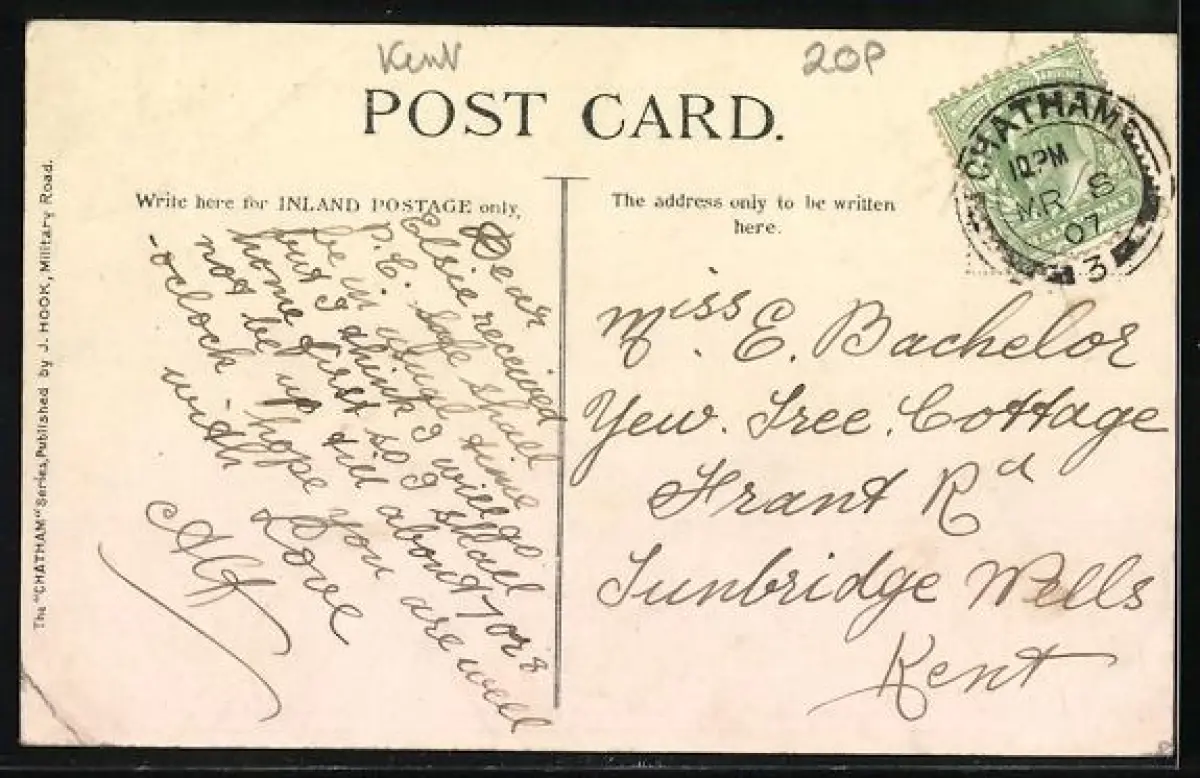 Kent
20P
POST CARD.
Write here for INLAND POSTAGE only,
The address only to be written
here.
The "CHATHAM" Series, Published by J. HOOK, Military Road.
CHATHAM
12 PM
MR 8
07
3
Dear
Elsie received
P.C. safe shall
be in usual time
but I think I will go
home first so I shall
not be up till about 7 or 8
-oclock - hope you are well
with Love
Alf
Miss E. Bachelor
Yew. Tree. Cottage
Frant Rd
Tunbridge Wells
Kent